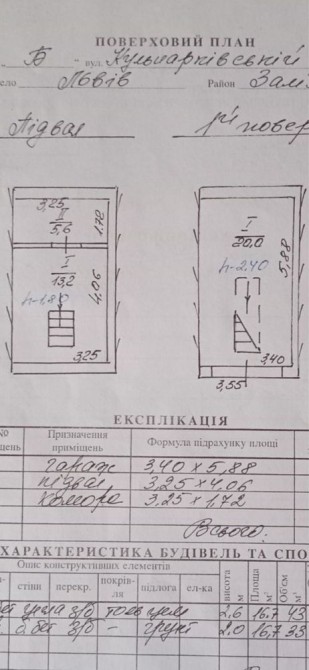 ПОВЕРХОВИЙ ПЛАН
Б вул. Кульпарківській
ело Львів Район
Підвал І-й повер
3,25
ІІ
5,6
1,72
І
13,2
4,06
h-1.80
3,25
І
20,0
5,88
h-2.40
3,40
3,55
ЕКСПЛІКАЦІЯ
№ Призначення приміщень Формула підрахунку площі
гараж 3,40 х 5,88
підвал 3,25 х 4,06
комора 3,25 х 1,72
Всього.
ХАРАКТЕРИСТИКА БУДІВЕЛЬ ТА СПО
Опис конструктивних елементів
стіни перекр. покрів-ля підлога ел-ка висота м Площа м² Об'єм м³
цегла з/б цем 2,6 16,7 43
з/б – грунт 2.0 16,7 33